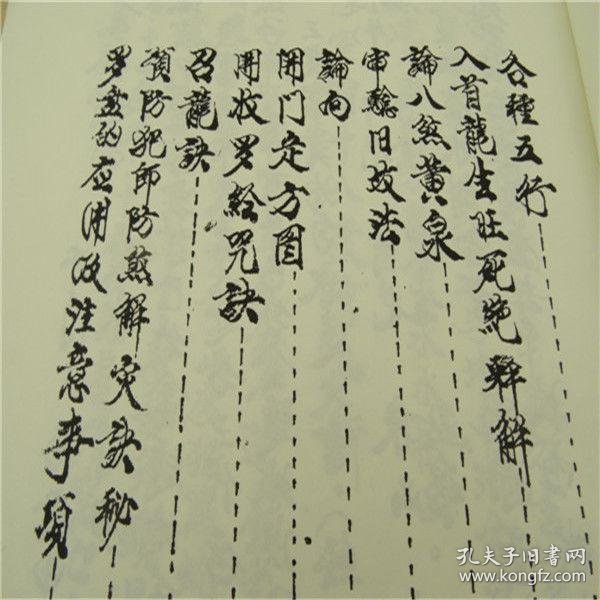 各種五行
入首龍生旺死絶解解
論八煞黄泉
审驗旧坟法
論向
開门定方图
開收罗經咒訣
召龍訣
預防犯師防煞解灾訣秘
罗盘的应用及注意事項
孔夫子旧书网
www.kongfz.com